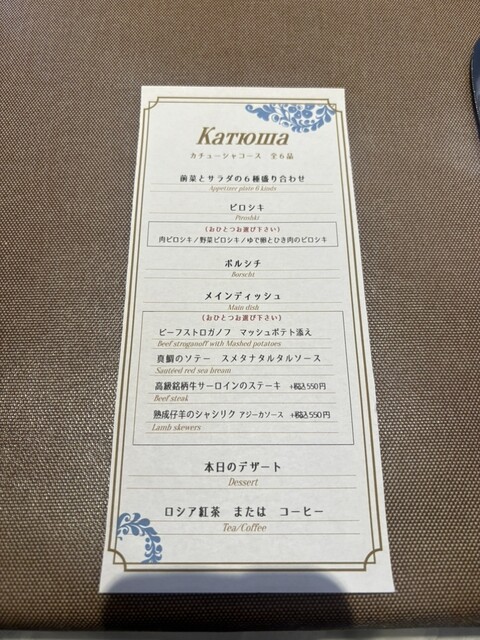 Катюша
カチューシャコース 全6品
前菜とサラダの6種盛り合わせ
Appetizer plate 6 kinds
ピロシキ
Piroshki
(おひとつお選び下さい)
肉ピロシキ/野菜ピロシキ/ゆで卵とひき肉のピロシキ
ボルシチ
Borscht
メインディッシュ
Main dish
(おひとつお選び下さい)
ビーフストロガノフ マッシュポテト添え
Beef stroganoff with Mashed potatoes
真鯛のソテー スメタナタルタルソース
Sautéed red sea bream
高級銘柄牛サーロインのステーキ +税込550円
Beef steak
熟成仔羊のシャシリク アジーカソース +税込550円
Lamb skewers
本日のデザート
Dessert
ロシア紅茶 または コーヒー
Tea/Coffee